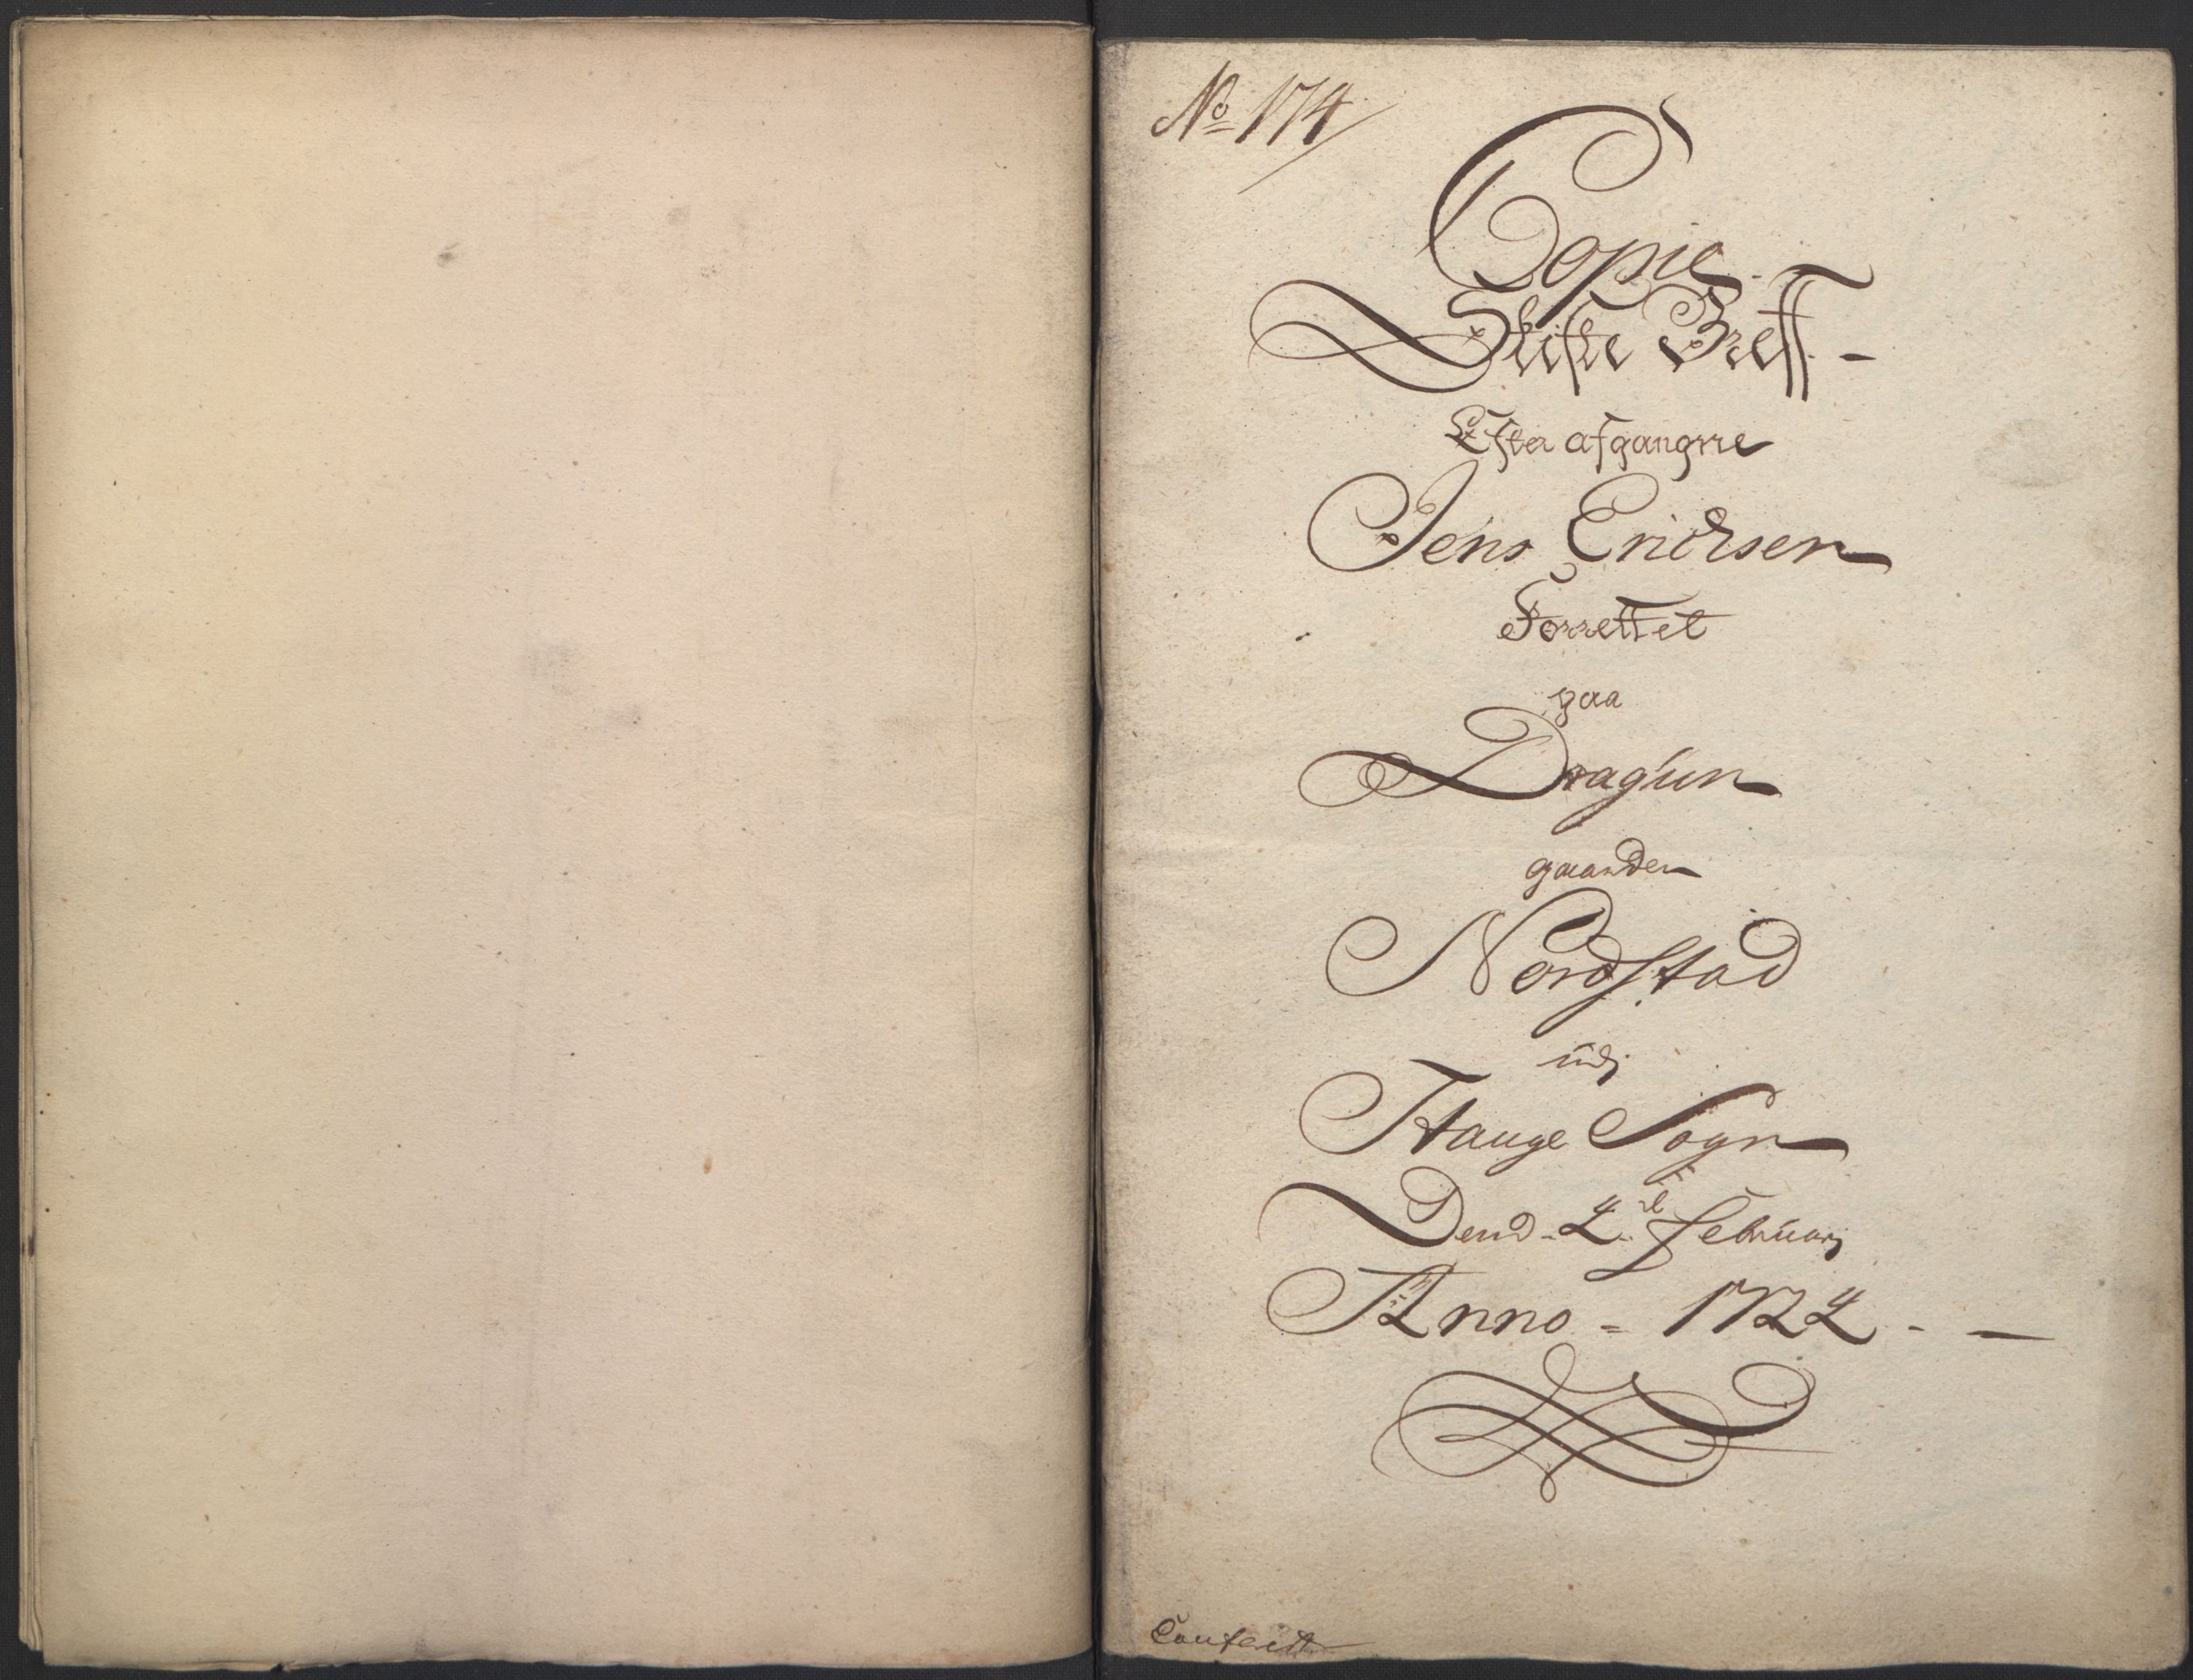 No 174
Copie
Skifte Breff -
Efter afgangne
Jens Erichsen
Forrettet
paa
Dragun
gaarden
Nordstad
udj
Hauge Sogn
Dend 2de februarj
Anno = 1724 - -
Confereret